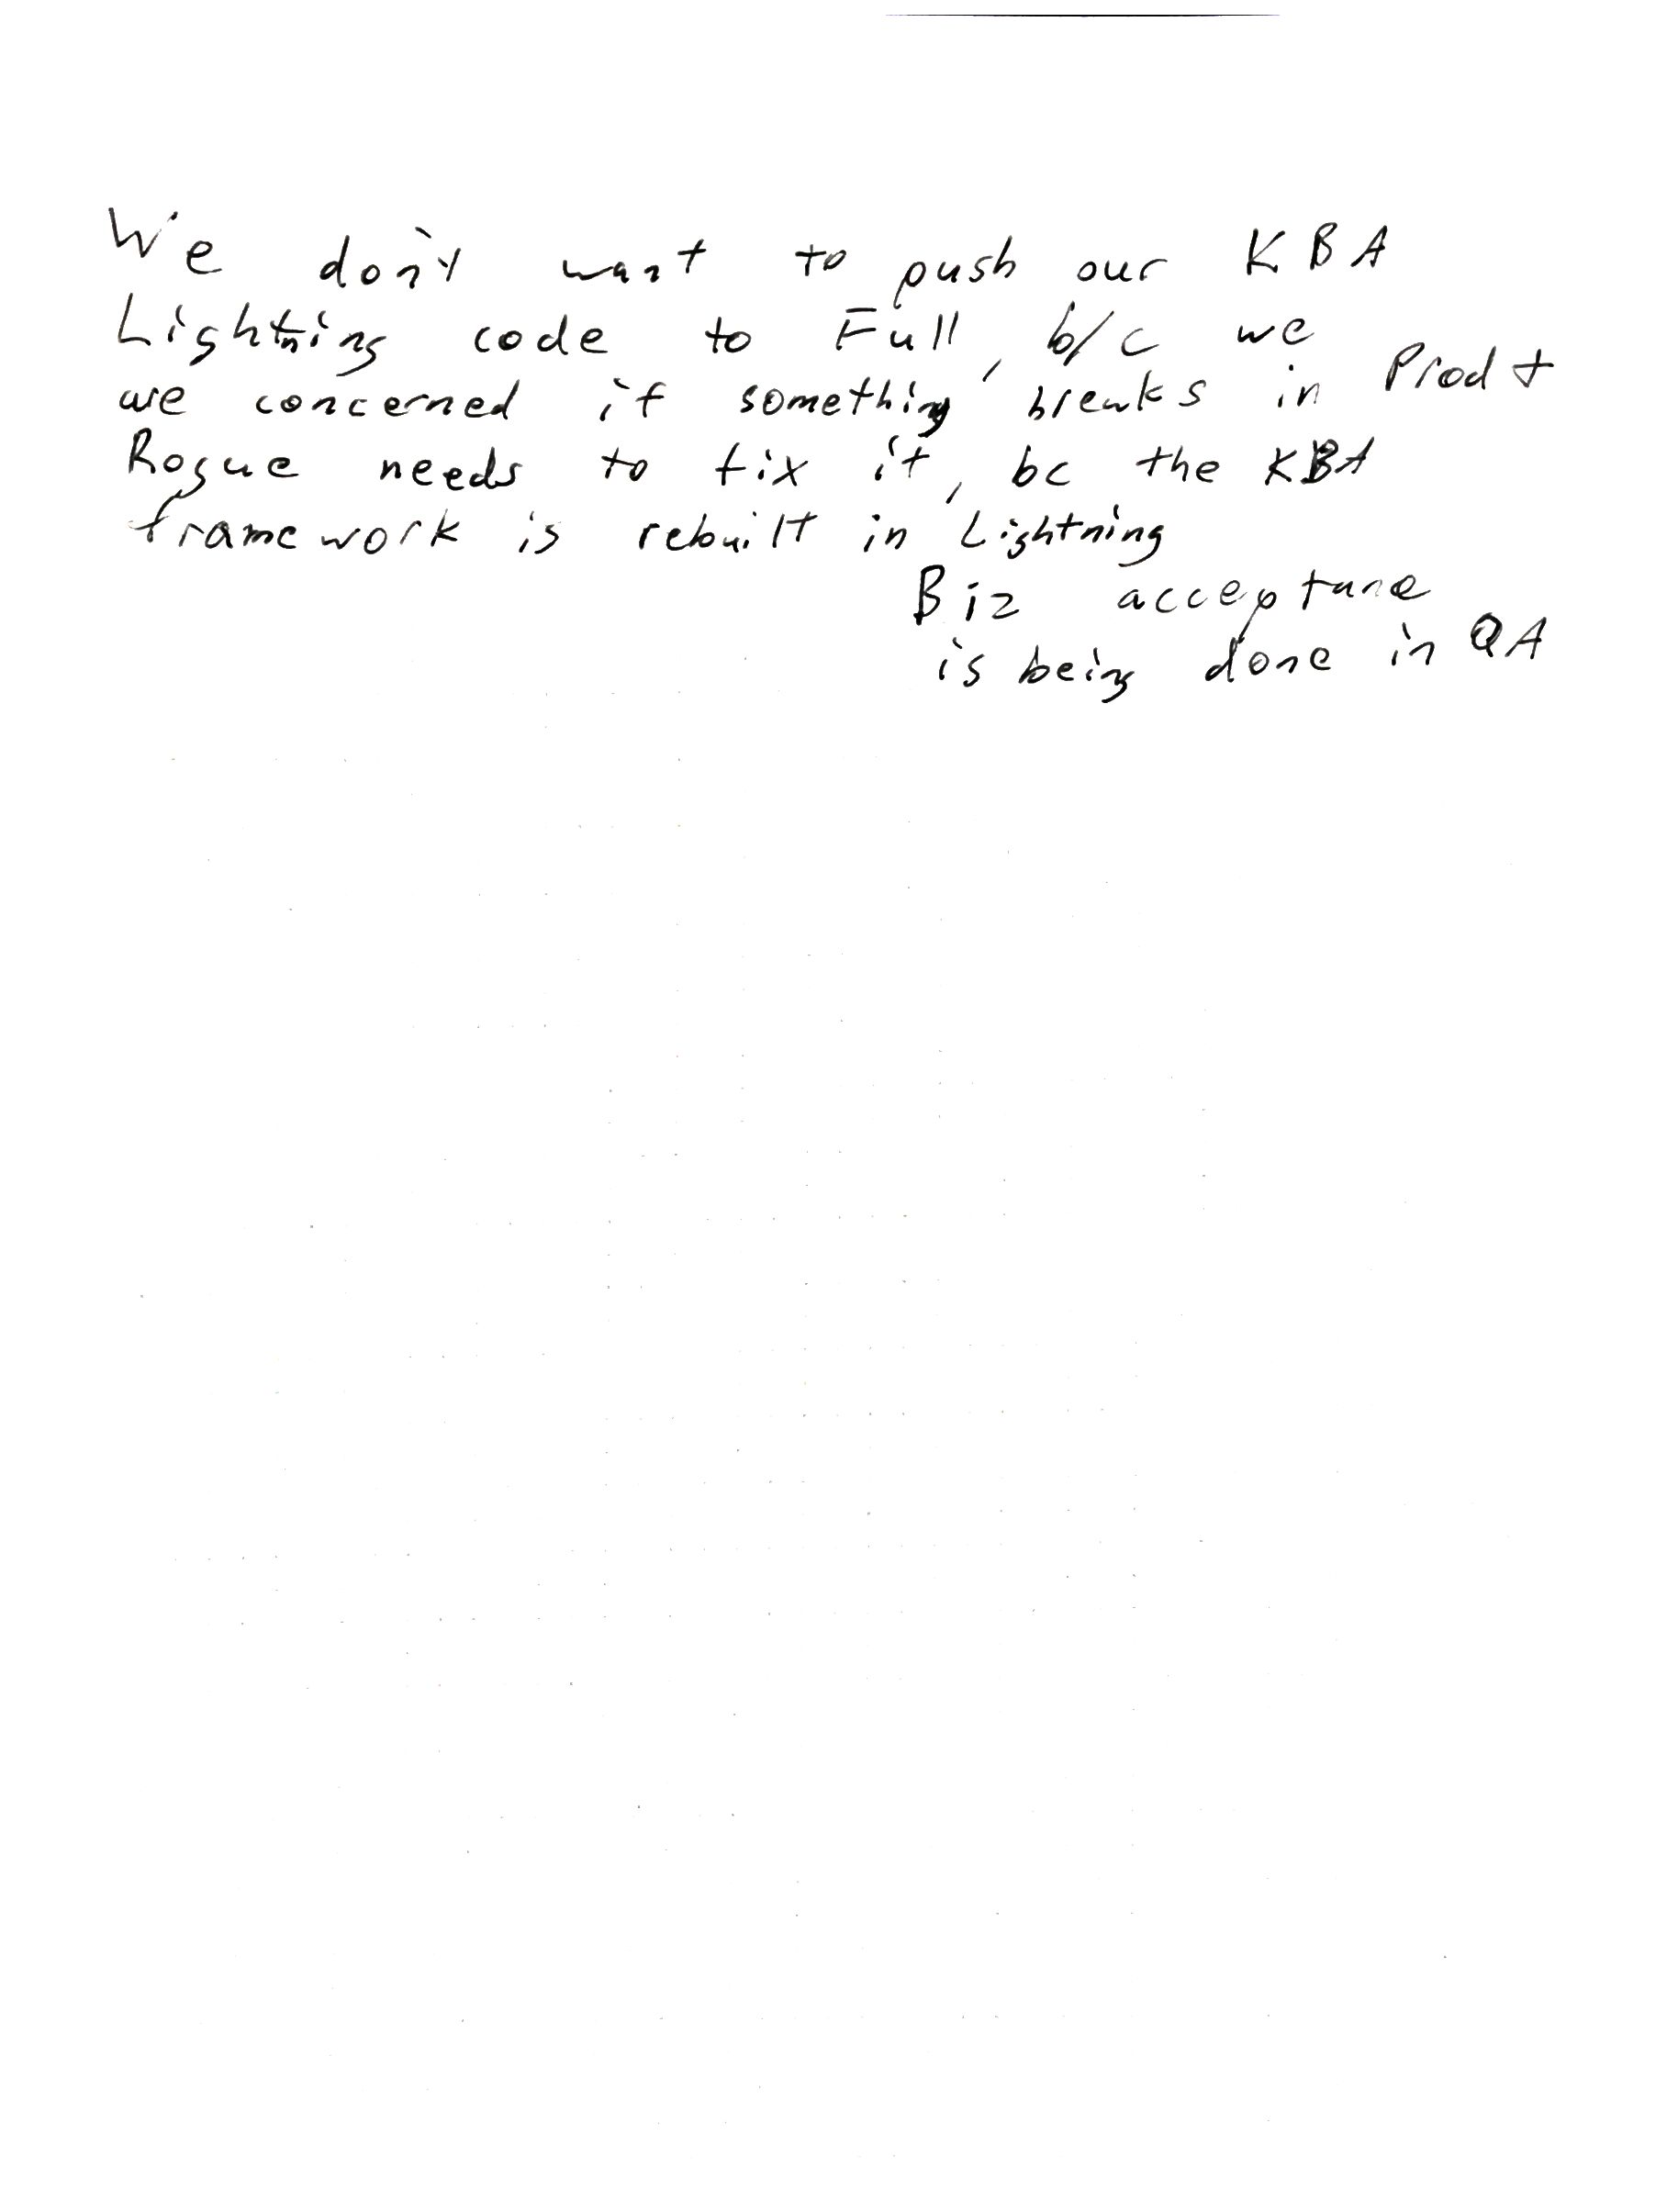 We don't want to push our KBA
Lightning code to Full, b/c we
are concerned if something breaks in Prod +
Rogue needs to fix it, bc the KBA
framework is rebuilt in Lightning
Biz acceptance
is being done in QA